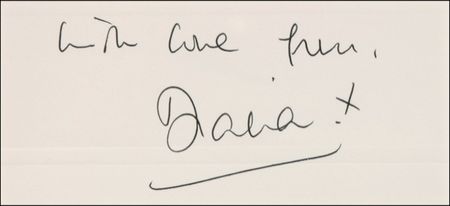 with love from,
Diana X